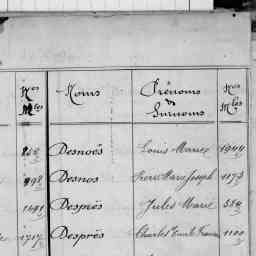 Nos Mles Noms Prénoms et Surnoms Nos Mles
Desnoës Louis Marie 1944
998 Desnos Pierre Marie Joseph 1173
1491 Després Jules Marie 558
1717 Després Charles Emile Francois 1100